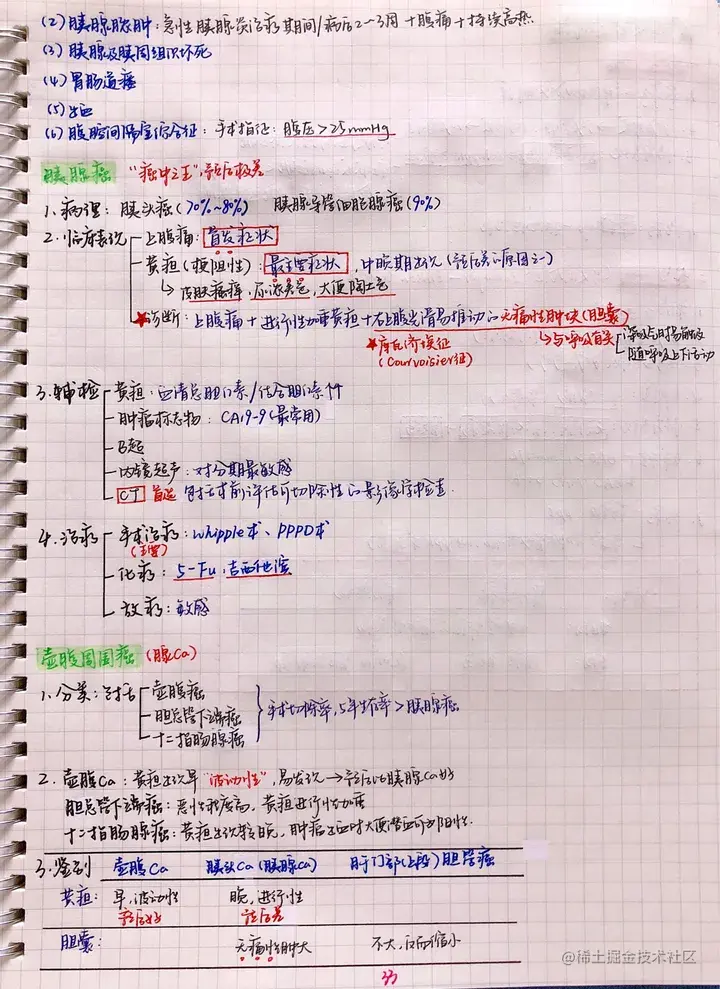 (2) 胰腺脓肿：急性胰腺炎治疗期间/病后2~3周+腹痛+持续高热
(3) 胰腺及胰周组织坏死
(4) 胃肠道瘘
(5) 出血
(6) 腹腔间隔室综合征：手术指征：腹压>25mmHg
胰腺癌 "癌中之王"，预后极差
1、病理：胰头癌(70%~80%) 胰腺导管细胞腺癌(90%)
2、临床表现 上腹痛：首发症状
黄疸(梗阻性)：最主要症状，中晚期出现(预后差的原因之一)
↳ 皮肤瘙痒，尿浓黄色，大便陶土色
★诊断：上腹痛+进行性加重黄疸+右上腹光滑易推动的无痛性肿块(胆囊)
★库瓦济埃征 ↳与呼吸有关 深吸气时易触及
(Courvoisier征) 随呼吸上下活动
3、辅检 黄疸：血清总胆红素/结合胆红素↑
肿瘤标志物：CA19-9(最常用)
B超
内镜超声：对分期最敏感
CT 首选 包括术前评估可切除性的影像学检查.
4、治疗 手术治疗：whipple术、PPPD术
(主要)
化疗：5-Fu，吉西他滨
放疗：敏感
壶腹周围癌 (腺Ca)
1、分类：包括 壶腹癌
胆总管下端癌 手术切除率，5年生存率>胰腺癌
十二指肠腺癌
2、壶腹Ca：黄疸出现早"波动性"，易发现→预后比胰腺Ca好
胆总管下端癌：恶性程度高，黄疸进行性加重
十二指肠腺癌：黄疸出现较晚，肿瘤出血时大便潜血可为阳性.
3、鉴别 壶腹Ca 胰头Ca(胰腺Ca) 肝门部(上段)胆管癌
黄疸： 早，波动性 晚，进行性
预后好 预后差
胆囊： 无痛性肿大 不大，反而缩小
33
@稀土掘金技术社区